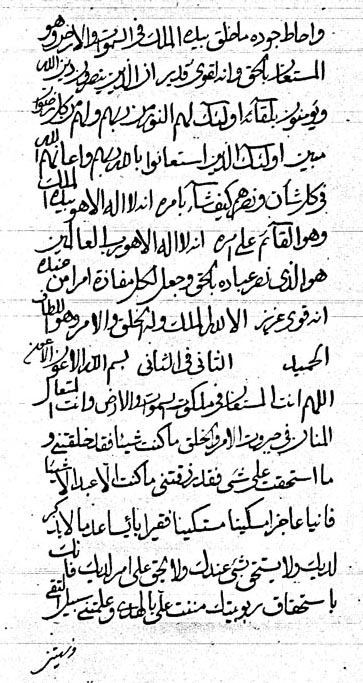 واحاط جوده ما خلق بيده الملك في السموات والارض وهو
المستعان بالحق وانه لقوى قدير ان الذين ينصرون دين الله
ويؤمنون بلقائه اولئك لهم النور من ربهم ولهم من كل
مبين اولئك الذين استعانوا بالله ربهم واعانهم الله
في كل شان ونصرهم كيف شاء بامره انه لا اله الا هو بيده الملك
وهو القائم على امره انه لا اله الا هو رب العالمين
هو الذى نصر عباده بالحق وجعل لكل مفازة امرا من عنده
انه قوى عزيز الا لله الملك وله الخلق والامر وهو السلطان
الحميد الثانى في الثانى بسم الله الاعون الاعون
اللهم انت المستعان في ملكوت السموات والارض وانت المتعال
المنان في جبروت الامر والخلق ما كنت شيئا فقد خلقتنى و
ما استحقت على شىء فقد رزقتنى ما كنت الا عبدا لا شيئا
فانيا عاجزا مسكينا مستكينا فقيرا بائسا عدما لا يذكر
لديك ولا يستحق بشىء عندك ولا يحق على امر لديك فانك
باستحقاق ربوبيتك مننت على بالهدى وعلمتنى سبيل التقى